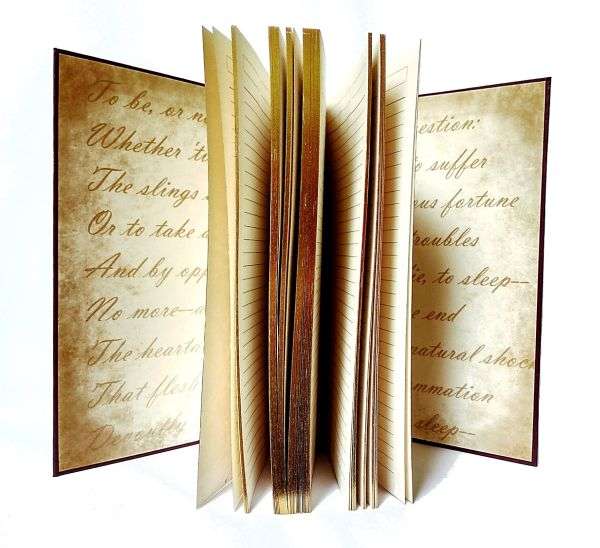 To be, or n
Whether 'ti
The slings
Or to take a
And by opp
No more—
The hearta
That flesh
Devoutly
estion:
o suffer
ous fortune
troubles
ie, to sleep—
e end
natural shock
mmation
sleep—